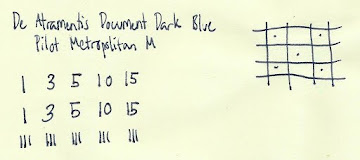 De Atramentis Document Dark Blue
Pilot Metropolitan M
1 3 5 10 15
1 3 5 10 15
||| ||| ||| ||| |||